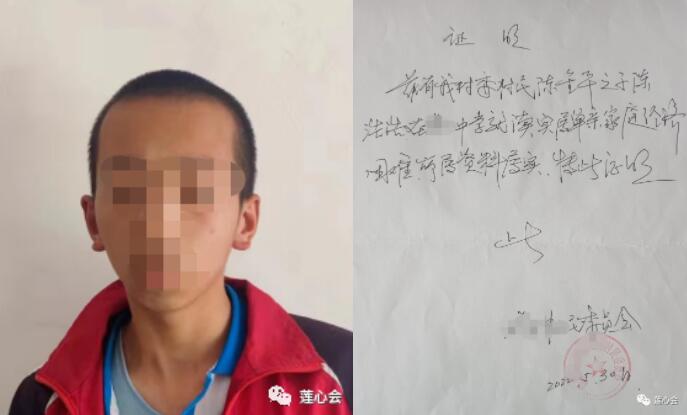 证 明
兹有我村委村民陈金平之子陈
在 中学就读实属单亲家庭经济
困难,所属资料属实,特此证明
委员会
2022.5.30日
莲心会
莲心会